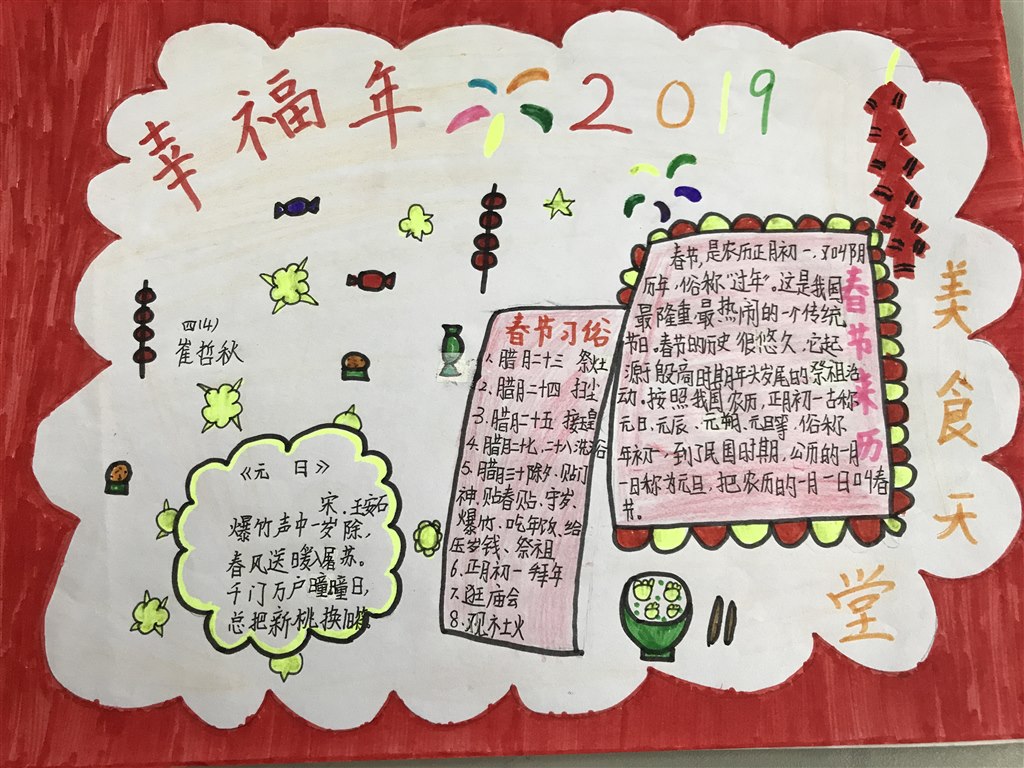 幸福年 2019
四(4)
崔哲秋
《元 日》
宋.王安石
爆竹声中一岁除,
春风送暖入屠苏。
千门万户曈曈日,
总把新桃换旧符
春节习俗
1、腊月二十三 祭灶
2、腊月二十四 扫尘
3、腊月二十五 接玉皇
4、腊月二十七、二十八洗浴
5、腊月三十除夕、贴门
神、贴春贴、守岁、
爆竹、吃年饭、给
压岁钱、祭祖
6、正月初一 拜年
7、逛庙会
8、观社火
春节来历
春节,是农历正月初一,又叫阴
历年,俗称"过年"。这是我国
最隆重、最热闹的一个传统
节日。春节的历史很悠久,它起
源于殷商时期年头岁尾的祭祖活
动。按照我国农历,正月初一古称
元日、元辰、元朔、元旦等,俗称
年初一,到了民国时期,公历的一月
一日称为元旦,把农历的一月一日叫春
节。
美食天堂